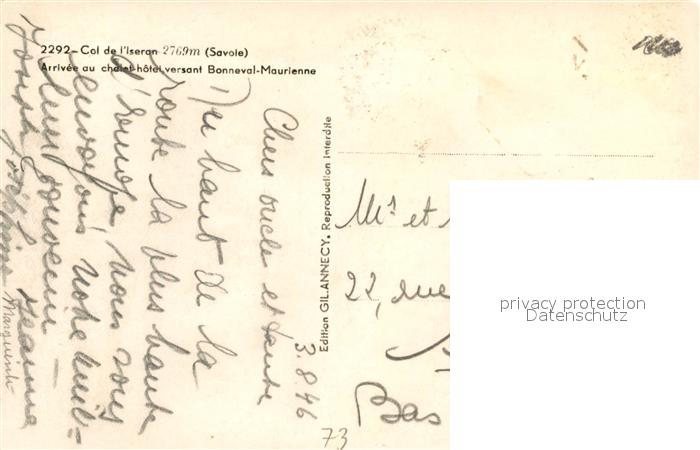 2292 - Col de l'Iseran 2769m (Savoie)
Arrivée au chalet-hôtel versant Bonneval-Maurienne
3.8.46
Chers oncle et tante
Du haut de la
route la plus haute
d'Europe nous vous
envoyons notre meil=
leur souvenir
Jeanne
Joseph Joséphine
Marguerite
Edition GIL. ANNECY. Reproduction Interdite
Mr et
22, rue
Bas
73
privacy protection
Datenschutz